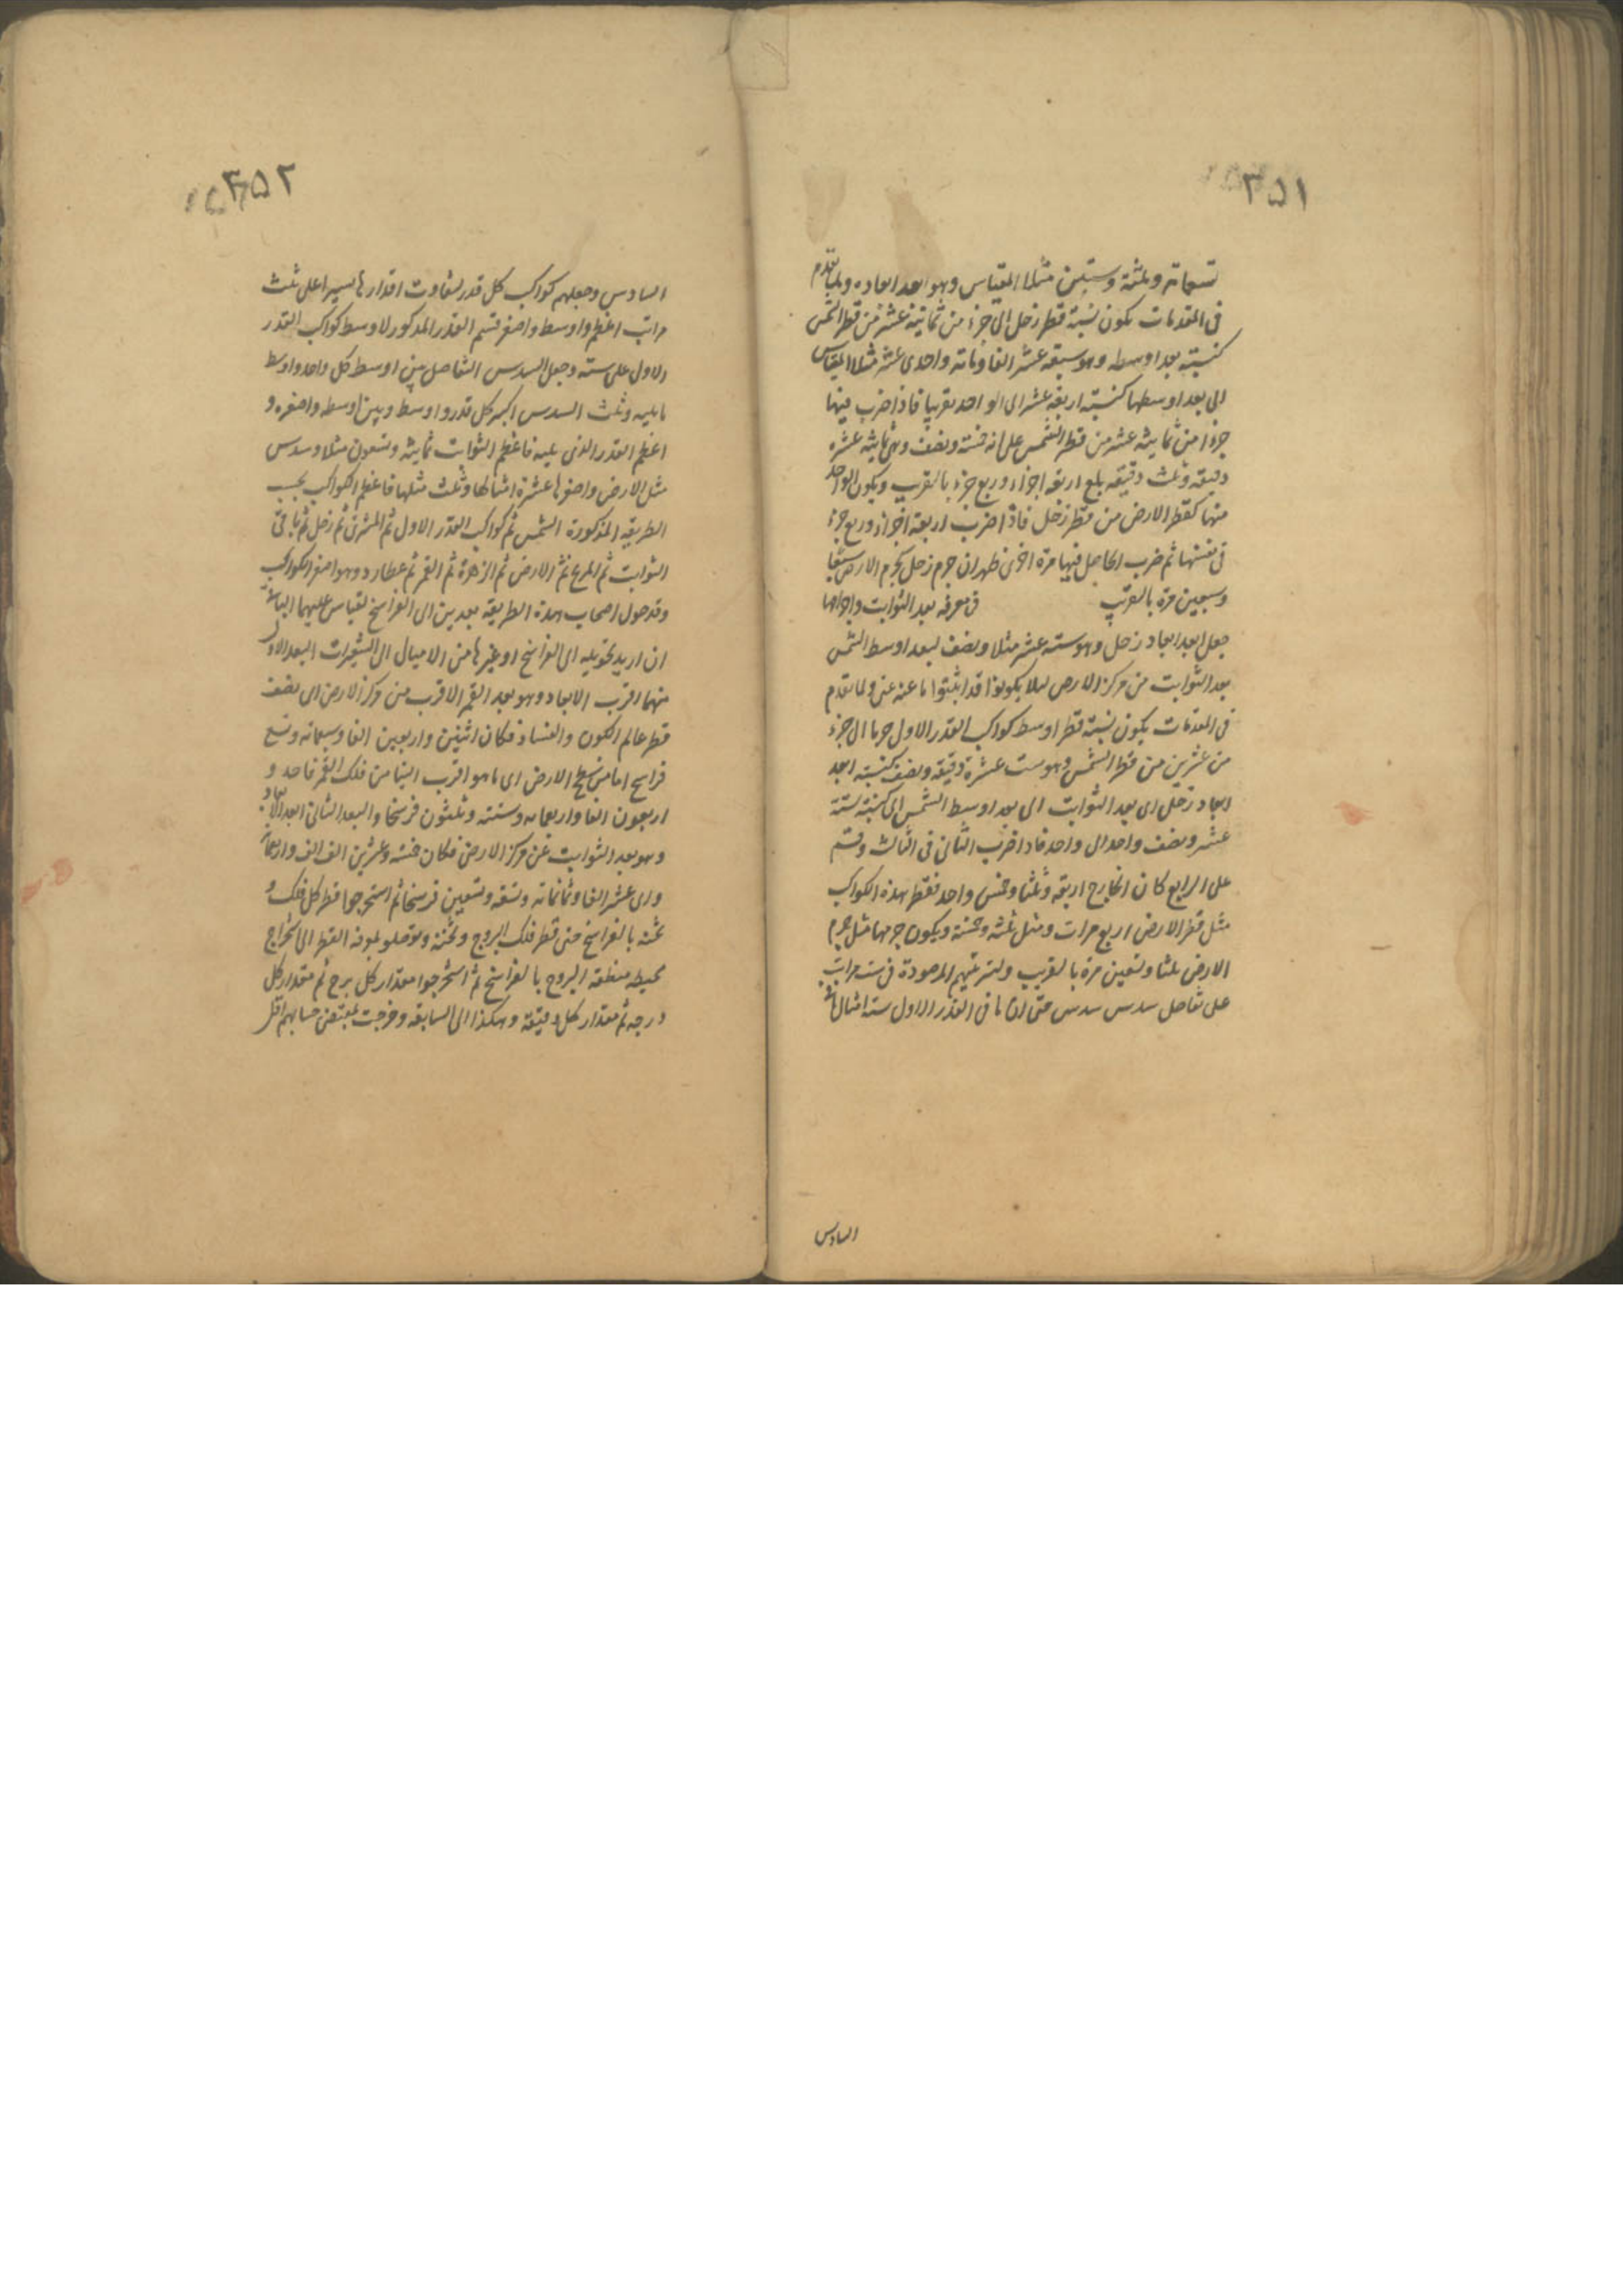 ٣٥١
تسعمائة وثلثة وستين مثلا للمقياس وهو ابعد ابعاده ولما تقدم
فى المقدمات يكون نسبة قطر زحل الى جزء من ثمانية عشر من قطر الشمس
كنسبة بعد اوسطه وهو سبعة عشر الفا ومائة واحدى عشر مثلا للمقياس
الى بعد اوسطها كنسبة اربعة عشر الى الواحد تقريبا فاذا ضرب فيها
جزءا من ثمانية عشر من قطر الشمس على انه خمسة ونصف وهى ثمانية عشره
دقيقة وثلث دقيقة بلغ اربعة اجزاء وربع جزء بالتقريب ويكون الواحد
منها كقطر الارض من قطر زحل فاذا ضرب اربعة اجزاء وربع جزء
فى نفسها ثم ضرب الحاصل فيها مرة اخرى ظهر ان جرم زحل كجرم الارض سبعا
وسبعين مرة بالتقريب فى معرفة بعد الثوابت واجرامها
جعل ابعد ابعاد زحل وهو ستة عشر مثلا ونصف لبعد اوسط الشمس
بعد الثوابت من مركز الارض لئلا يكونوا قد اثبتوا ما عنه غنى ولما تقدم
فى المقدمات يكون نسبة قطر اوسط كواكب القدر الاول جرما الى جزء
من عشرين من قطر الشمس وهو ست عشرة دقيقة ونصف كنسبة ابعد
ابعاد زحل اى بعد الثوابت الى بعد اوسط الشمس اى كنسبة ستة
عشر ونصف واحد الى واحد فاذا ضرب الثانى فى الثالث وقسم
على الرابع كان الخارج اربعة وثلثا وخمس واحد فقطر هذه الكواكب
مثل قطر الارض اربع مرات ومثل ثلثه وخمسه ويكون جرمها مثل جرم
الارض ثلثا وتسعين مرة بالتقريب ولترتيبهم المرصودة فى ست مراتب
على تفاضل سدس سدس حتى ان ما فى القدر الاول ستة امثال ما فى
السادس
٣٥٢
السادس وجعلهم كواكب كل قدر لتفاوت اقدارها يسيرا على ثلث
مراتب اعظم واوسط واصغر قسم القدر المذكور لاوسط كواكب القدر
الاول على ستة وجعل السدس التفاضل بين اوسط كل واحد واوسط
ما يليه وثلث السدس اكبر كل قدر واوسط وبين اوسطه واصغره و
اعظم القدر الذى يليه فاعظم الثوابت ثمانية وتسعون مثلا وسدس
مثل الارض واصغرها عشرة امثالها وثلث مثلها فاعظم الكواكب بحسب
الطريقة المذكورة الشمس ثم كواكب القدر الاول ثم المشترى ثم زحل ثم باقى
الثوابت ثم المريخ ثم الارض ثم الزهرة ثم القمر ثم عطارد وهو اصغر الكواكب
وقد حول اصحاب هذه الطريقة بعدين الى الفراسخ ليقاس عليهما الباقية
ان اريد تحويله الى الفراسخ او غيرها من الاميال الى الشعيرات البعد الاول
منهما اقرب الابعاد وهو بعد القمر الاقرب من مركز الارض اى نصف
قطر عالم الكون والفساد فكان اثنين واربعين الفا وسبعمائة وتسع
فراسخ اما من سطح الارض اى ما هو اقرب الينا من فلك القمر فاحد و
اربعون الفا واربعمائة وستة وثلثون فرسخا والبعد الثانى ابعد الابعاد
وهو بعد الثوابت عن مركز الارض فكان خمسة وعشرين الف الف واربعمائة
واى عشر الفا وثمانمائة وتسعة وتسعين فرسخا ثم استخرجوا قطر كل فلك و
ثخنه بالفراسخ حتى قطر فلك البروج وثخنه وتوصلوا بمعرفة القطر الى استخراج
محيط منطقة البروج بالفراسخ ثم استخرجوا مقدار كل برج ثم مقدار كل
درجة ثم مقدار كل دقيقة وهكذا الى السابقة وخرجت بمقتضى حسابهم اقل